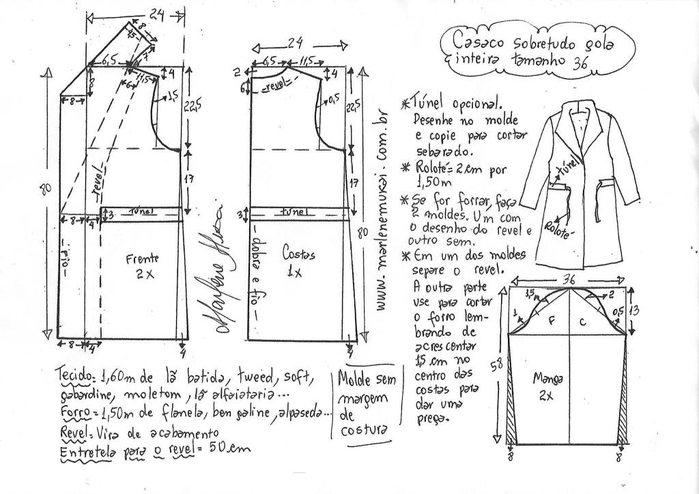 24
8
15
7
6,5
11,5
4
8
6
1,5
22,5
8
revel
17
80
8
4
3
Túnel
fio
Frente
2x
8
4
4
24
2
6,5
11,5
4
6
revel
0,5
22,5
17
3
túnel
80
dobra e fio
Costas
1x
4
www.marlenemukai.com.br
Casaco sobretudo gola
inteira tamanho 36
* Túnel opcional.
Desenhe no molde
e copie para cortar
sebarado.
* Rolotê = 2cm por
1,50m
* Se for forrar, faça
2 moldes. Um com
o desenho do revel e
outro sem.
* Em um dos moldes
separe o revel.
A outra parte
use para cortar
o forro lem-
brando de
acrescentar
15 cm no
centro das
costas para
dar uma
prega.
túnel
Rolotê
36
1,5
2
1
F
C
0,5
13
58
Manga
2x
8
8
Tecido = 1,60m de lã batida, tweed, soft,
gabardine, moletom, lã alfaiataria...
Forro = 1,50m de flanela, bengaline, alpaseda...
Revel = Vira de acabamento
Entretela para o revel = 50cm
Molde sem
margem
de
costura